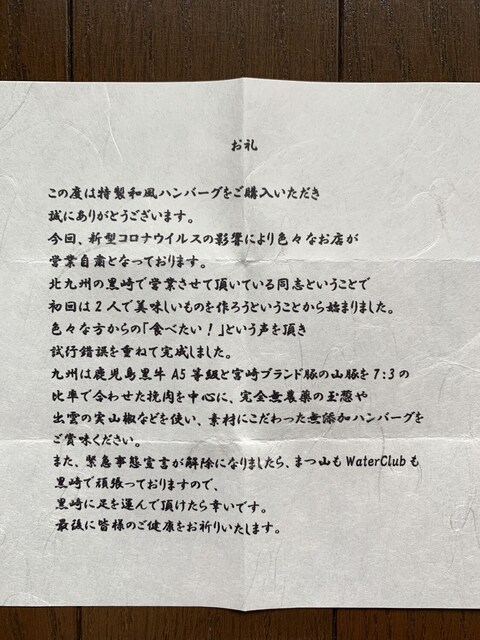 お礼
この度は特製和風ハンバーグをご購入いただき
誠にありがとうございます。
今回、新型コロナウイルスの影響により色々なお店が
営業自粛となっております。
北九州の黒崎で営業させて頂いている同志ということで
初回は2人で美味しいものを作ろうということから始まりました。
色々な方からの「食べたい！」という声を頂き
試行錯誤を重ねて完成しました。
九州は鹿児島黒牛A5等級と宮崎ブランド豚の山豚を7:3の
比率で合わせた挽肉を中心に、完全無農薬の玉葱や
出雲の実山椒などを使い、素材にこだわった無添加ハンバーグを
ご賞味ください。
また、緊急事態宣言が解除になりましたら、まつ山もWaterClubも
黒崎で頑張っておりますので、
黒崎に足を運んで頂けたら幸いです。
最後に皆様のご健康をお祈りいたします。